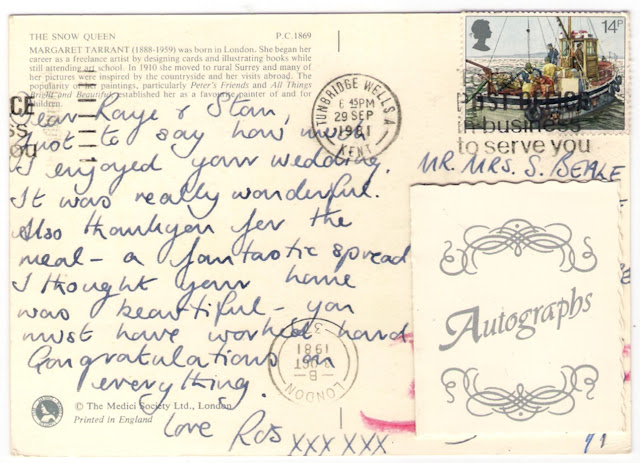 THE SNOW QUEEN P.C.1869
MARGARET TARRANT (1888-1959) was born in London. She began her
career as a freelance artist by designing cards and illustrating books while
still attending art school. In 1910 she moved to rural Surrey and many of
her pictures were inspired by the countryside and her visits abroad. The
popularity of her paintings, particularly Peter's Friends and All Things
Bright and Beautiful established her as a favourite painter of and for
children.
Dear Kaye & Stan,
Just to say how much
I enjoyed your wedding.
It was really wonderful.
Also thankyou for the
meal - a fantastic spread
I thought your home
was beautiful - you
must have worked hard
Congratulations on
everything.
Love Ros xxx xxx
© The Medici Society Ltd., London
Printed in England
14P
TUNBRIDGE WELLS A
6 15PM
29 SEP
1981
KENT
in business
to serve you
MR. MRS. S. BEALE
Autographs
LONDON
1981